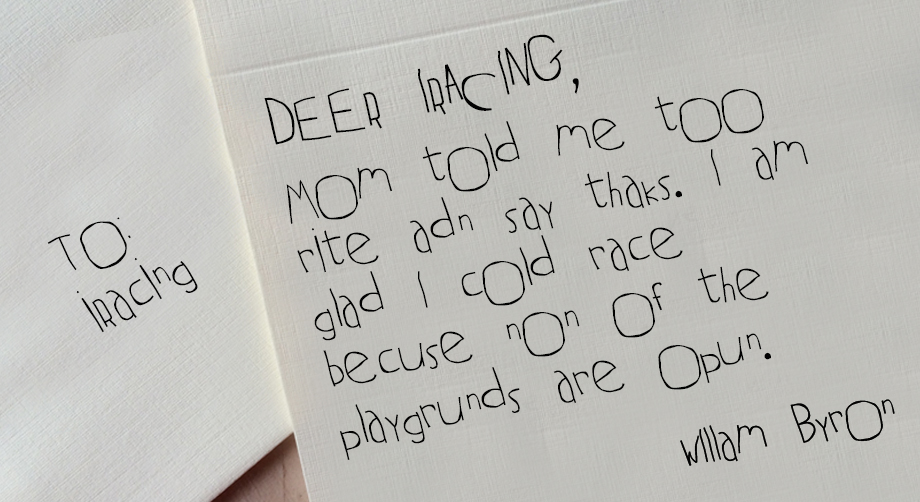 TO:
iRacing
DEER IRACING,
MOm tOld me tOO
rite adn say thaks. I am
glad I cOld race
becuse nOn Of the
playgrunds are Opun.
wIllam ByrOn